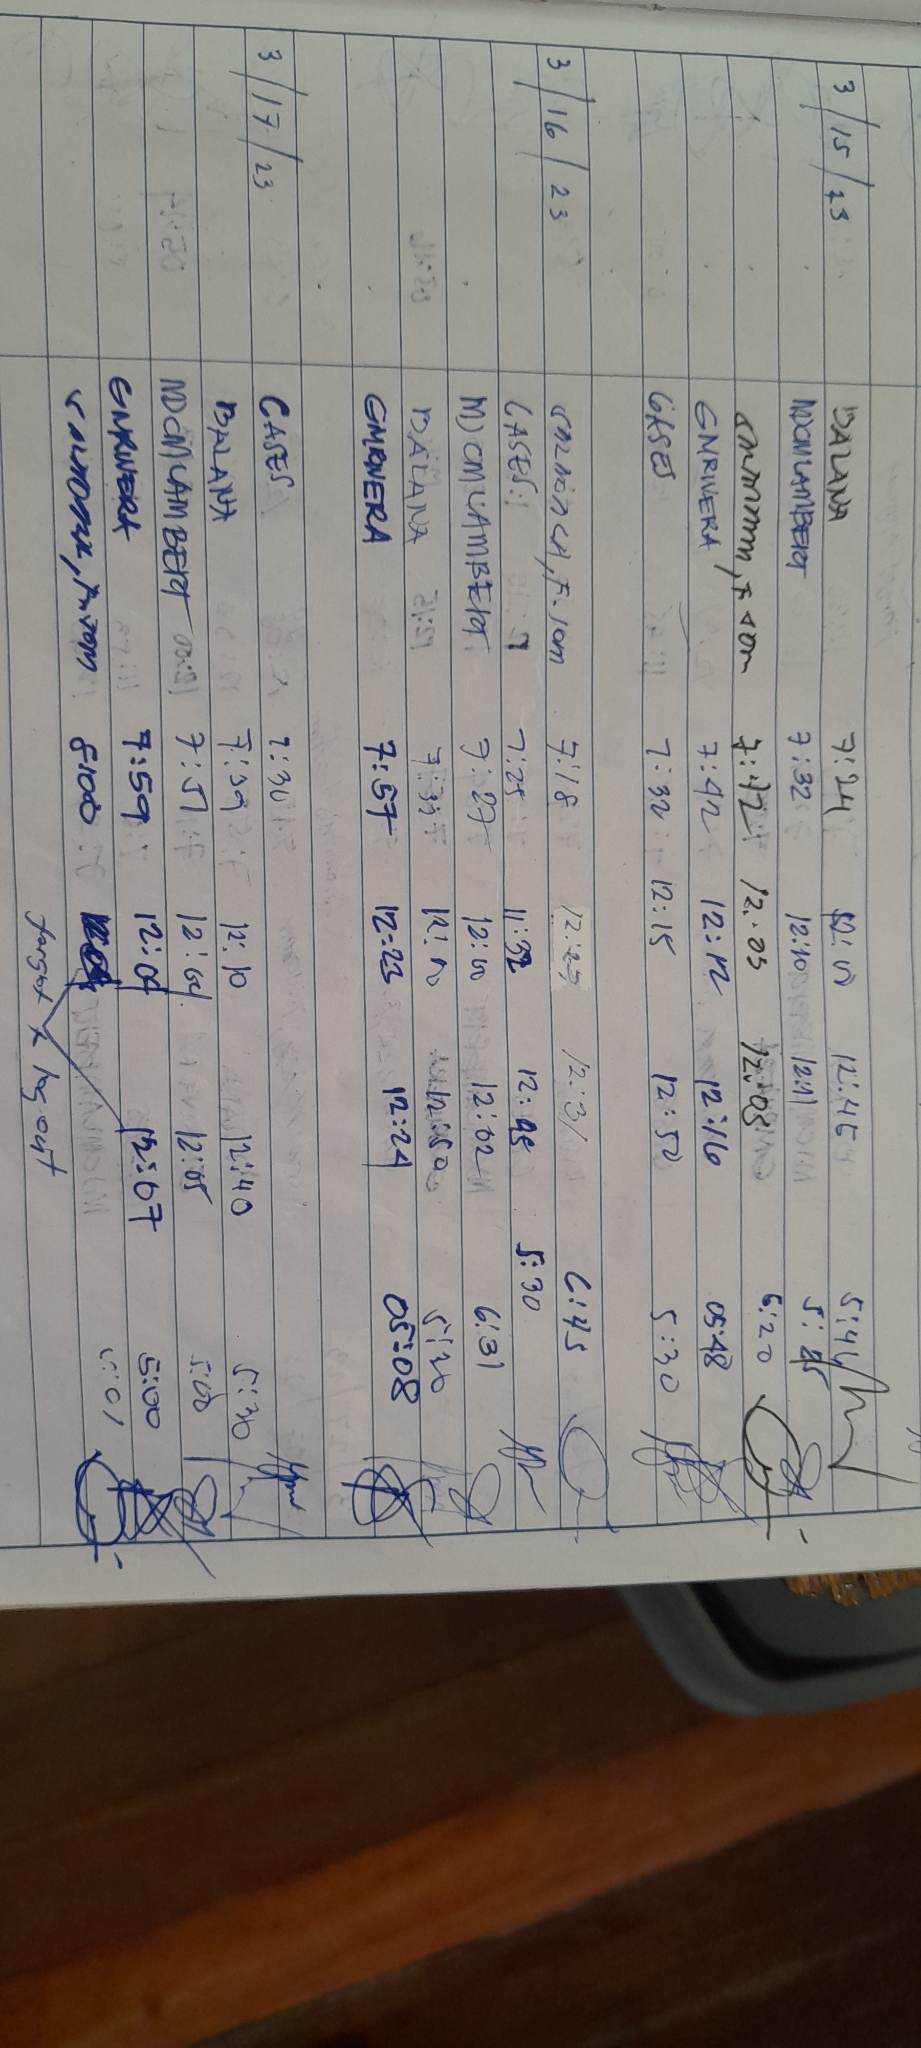 3/15/23 BALANA 7:24 12:10 12:45 5:41
MDCMLAMBERT 7:32 12:10 12:11
7:42 12:03 12:03 5:20
GMRIVERA 7:42 12:12 12:16 05:48
CASES 7:32 12:15 12:50 5:30
3/16/23 7:18 12:25 12:31 6:45
CASES 7:25 11:32 12:45 5:30
MDCMLAMBERT 7:27 12:00 12:02 6:31
BALANA 7:37 12:10 12:50 5:30
GMRIVERA 7:57 12:23 12:24 05:08
3/17/23 CASES 7:30
BALANA 7:39 12:10 12:40 5:30
MDCMLAMBERT 7:51 12:04 12:05 5:00
GMRIVERA 7:59 12:07 5:00
8:00 5:01
forgot to log out